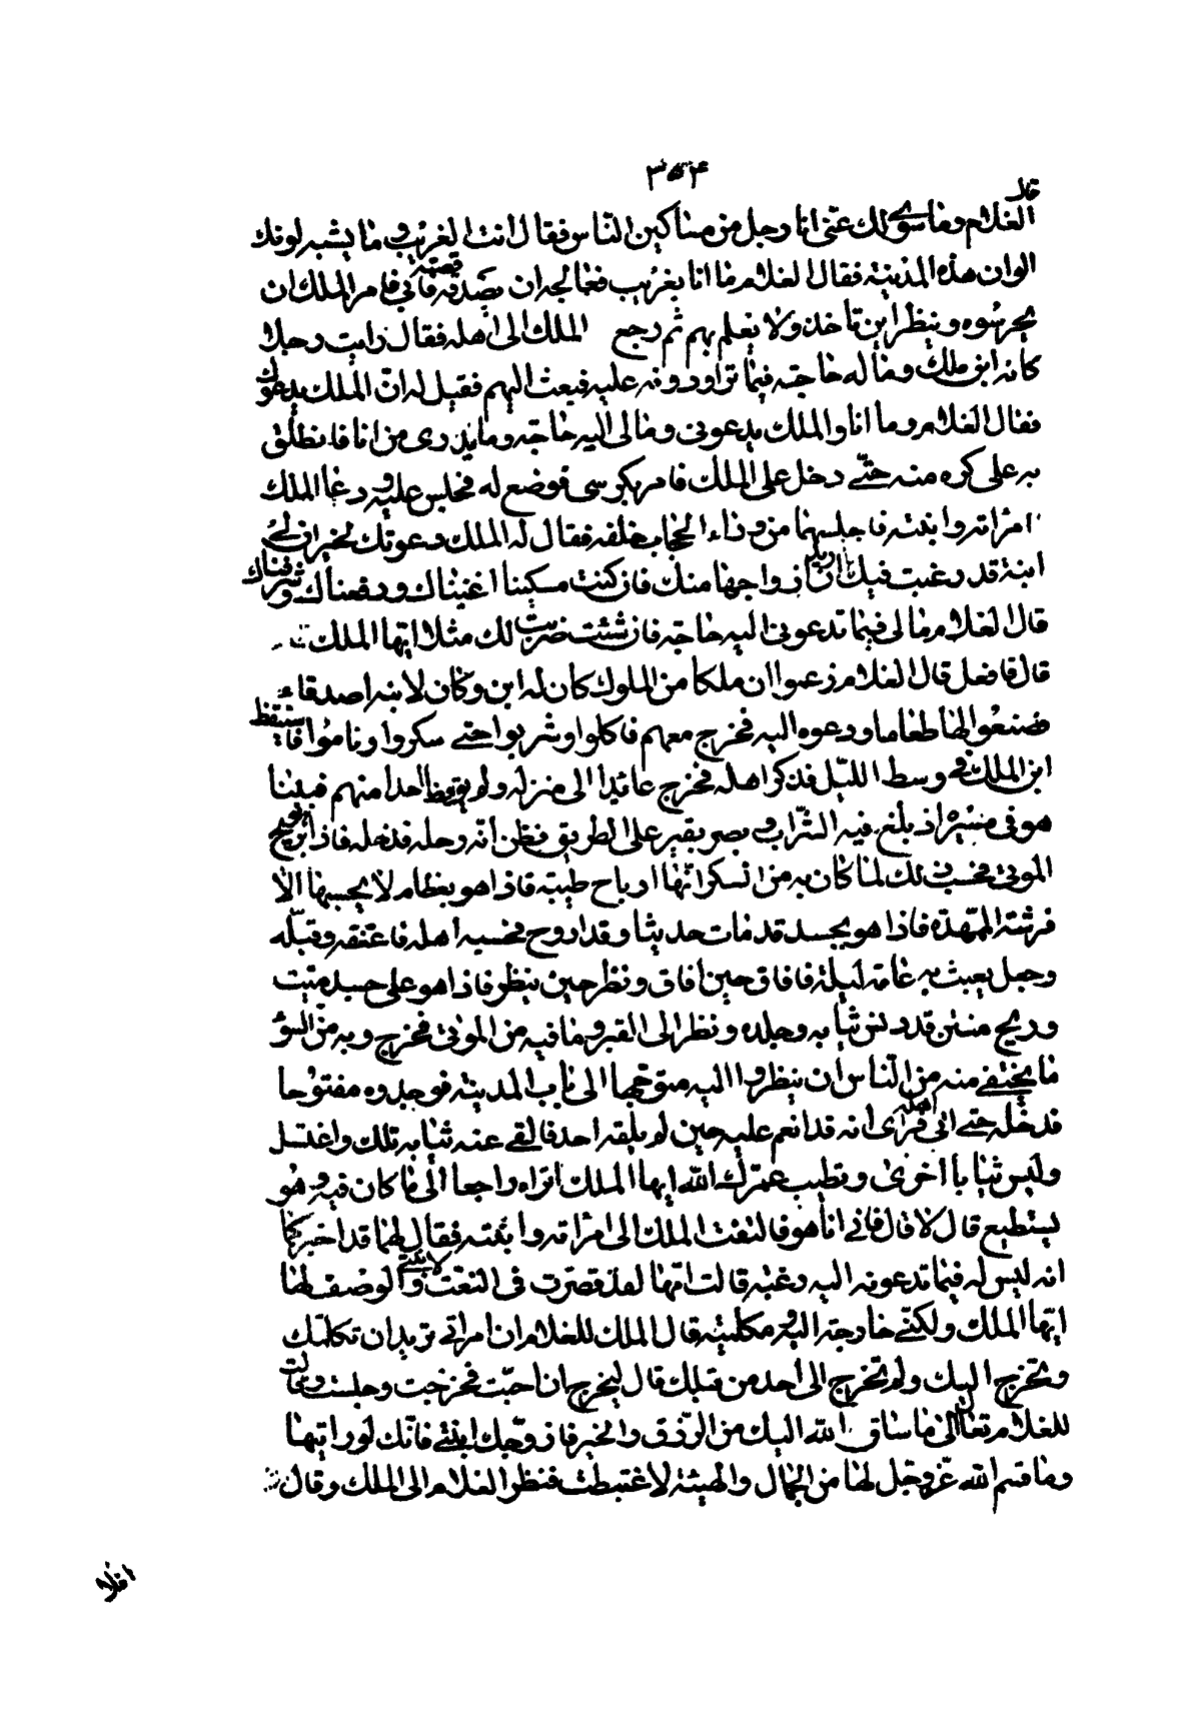 ٣٥٤
قال
الغلام وما سؤالك عنّى انا رجل من مساكين النّاس فقال انت لغريب وما يشبه لونك
الوان هذه المدينة فقال الغلام ما انا بغريب فعالجه ان يصدقه قصته فابى فامر الملك ان
يحرسوه وينظر اين تاخذ ولا يعلم بهم ثم رجع الملك الى اهله فقال رايت رجلا
كانه ابن ملك وما له حاجة فيما تراودونه عليه فبعث اليهم فقيل له انّ الملك يدعوك
فقال الغلام وما انا والملك يدعونى ومالى اليه حاجة وما يدرى من انا فانطلق
به على كره منه حتّى دخل على الملك فامر بكرسى فوضع له فجلس عليه ودعا الملك
امراته وابنته فاجلسهما من وراء الحجاب خلفه فقال له الملك دعوتك لخير ان لى
ابنة قد رغبت فيك اريد ان ازواجها منك فان كنت مسكينا اغنيناك ورفعناك وشرفناك
قال الغلام مالى فيما تدعونى اليه حاجة فان شئت ضربت لك مثلا ايّها الملك
قال فافعل قال الغلام زعموا ان ملكا من الملوك كان له ابن وكان لابنه اصدقاء
صنعوا له طعاما ودعوه اليه فخرج معهم فاكلوا وشربوا حتى سكروا وناموا فاستيقظ
ابن الملك فى وسط الليل فذكر اهله فخرج عائدا الى منزله ولم يوقظ احدا منهم فبينا
هو فى مسيره اذ بلغ فيه الشّراب فبصر بقبر على الطريق فظن انّه رحله فدخله فاذا بريح
الموتى فحسب ذلك لما كان به من السكر انّها ارياح طيبة فاذا هو بعظام لا يحسبها الّا
فرشته الممهّدة فاذا هو بجسد قد مات حديثا وقد اروح فحسبه اهله فاعتنقه وقبّله
وجعل يعبث به عامة ليلة فافاق حين افاق ونظر حين ينظر فاذا هو على جسد ميّت
وريح منتن قد دنس ثيابه وجلده ونظر الى القبر وما فيه من الموتى فخرج وبه من السّوء
ما يختفى منه من النّاس ان ينظروا اليه متوجّها الى باب المدينة فوجده مفتوحا
فدخله حتى اتى اهله فراى انه قد انعم عليه حين لم يلقه احد فالقى عنه ثيابه تلك واغتسل
ولبس ثيابا اخرى وتطيب عمّرك الله ايها الملك اتراه راجعا الى ما كان فيه وهو
يستطيع قال لا قال فانى انا هو فالتفت الملك الى امراته وابنته فقال لهما قد اخبرتكما
انه ليس له فيما تدعونه اليه رغبة قالت امّها لقد قصّرت فى النعت لابنتى والوصف لها
ايّها الملك ولكنّى خارجة اليه ومكلمته قال الملك للغلام ان امراتى تريد ان تكلمك
وتخرج اليك ولم تخرج الى احد من قبلك قال لتخرج ان احبّت فخرجت وجلست وقالت
للغلام تعال الى ما ساق الله اليك من الرّزق والخير فازوّجك ابنتى فانّك لو رايتها
وما قسم الله عزّ وجل لها من الجمال والهيئة لاغتبطت فنظر الغلام الى الملك وقال
افلا